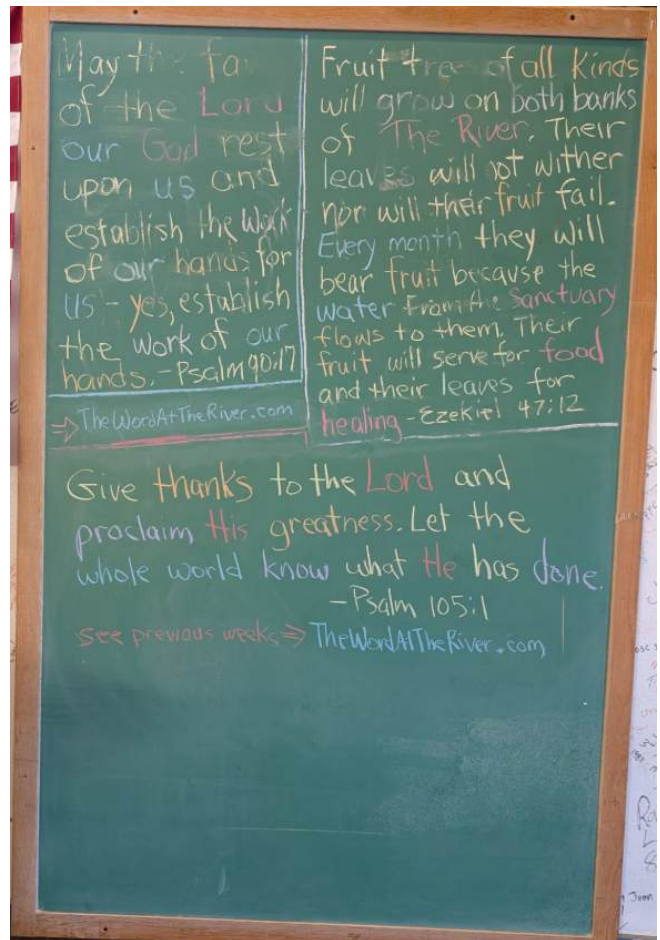 May the fa
of the Lord
our God rest
upon us and
establish the work
of our hands for
us - yes, establish
the work of our
hands. - Psalm 90:17
⇒ TheWordAtTheRiver.com
Fruit trees of all kinds
will grow on both banks
of The River. Their
leaves will not wither
nor will their fruit fail.
Every month they will
bear fruit because the
water from the Sanctuary
flows to them. Their
fruit will serve for food
and their leaves for
healing - Ezekiel 47:12
Give thanks to the Lord and
proclaim His greatness. Let the
whole world know what He has done.
- Psalm 105:1
see previous weeks ⇒ TheWordAtTheRiver.com